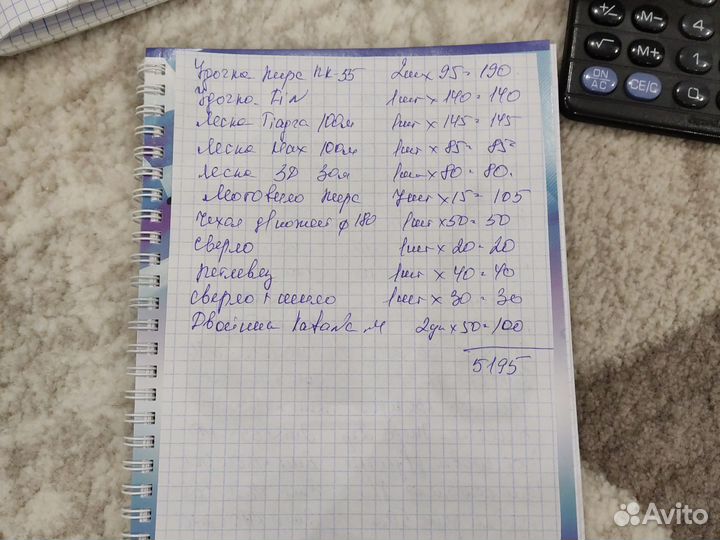 Удочка пирс ПК-35 2шт х 95 = 190
Удочка Fin 1шт х 140 = 140
Леска 100м 1шт х 145 = 145
Леска Max 100м 1шт х 85 = 85
Леска 3D 30м 1шт х 80 = 80.
Мотовило пирс 7шт х 15 = 105
Чехол ф 180 1шт х 50 = 50
Сверло 1шт х 20 = 20
ретлевез 1шт х 40 = 40
сверло + шило 1шт х 30 = 30
Двойник м 2уп х 50 = 100
5195
+/- M- 4
√ M+ 1
ON/AC CE/C 0
Avito